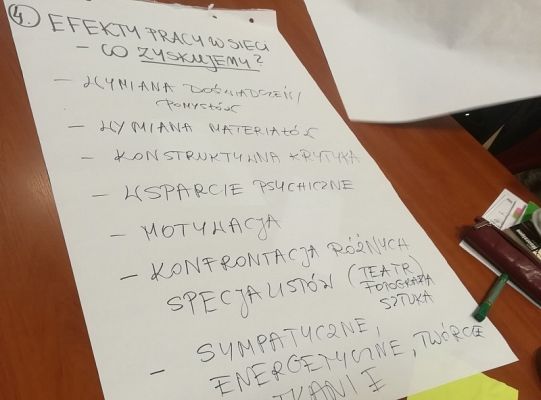 4. EFEKTY PRACY W SIECI
- CO ZYSKUJEMY?
- WYMIANA DOŚWIADCZEŃ/
POMYSŁÓW
- WYMIANA MATERIAŁÓW
- KONSTRUKTYWNA KRYTYKA
- WSPARCIE PSYCHICZNE
- MOTYWACJA
- KONFRONTACJA RÓŻNYCH
SPECJALISTÓW (TEATR)
FOTOGRAFIA
SZTUKA
- SYMPATYCZNE,
ENERGETYCZNE, TWÓRCZE